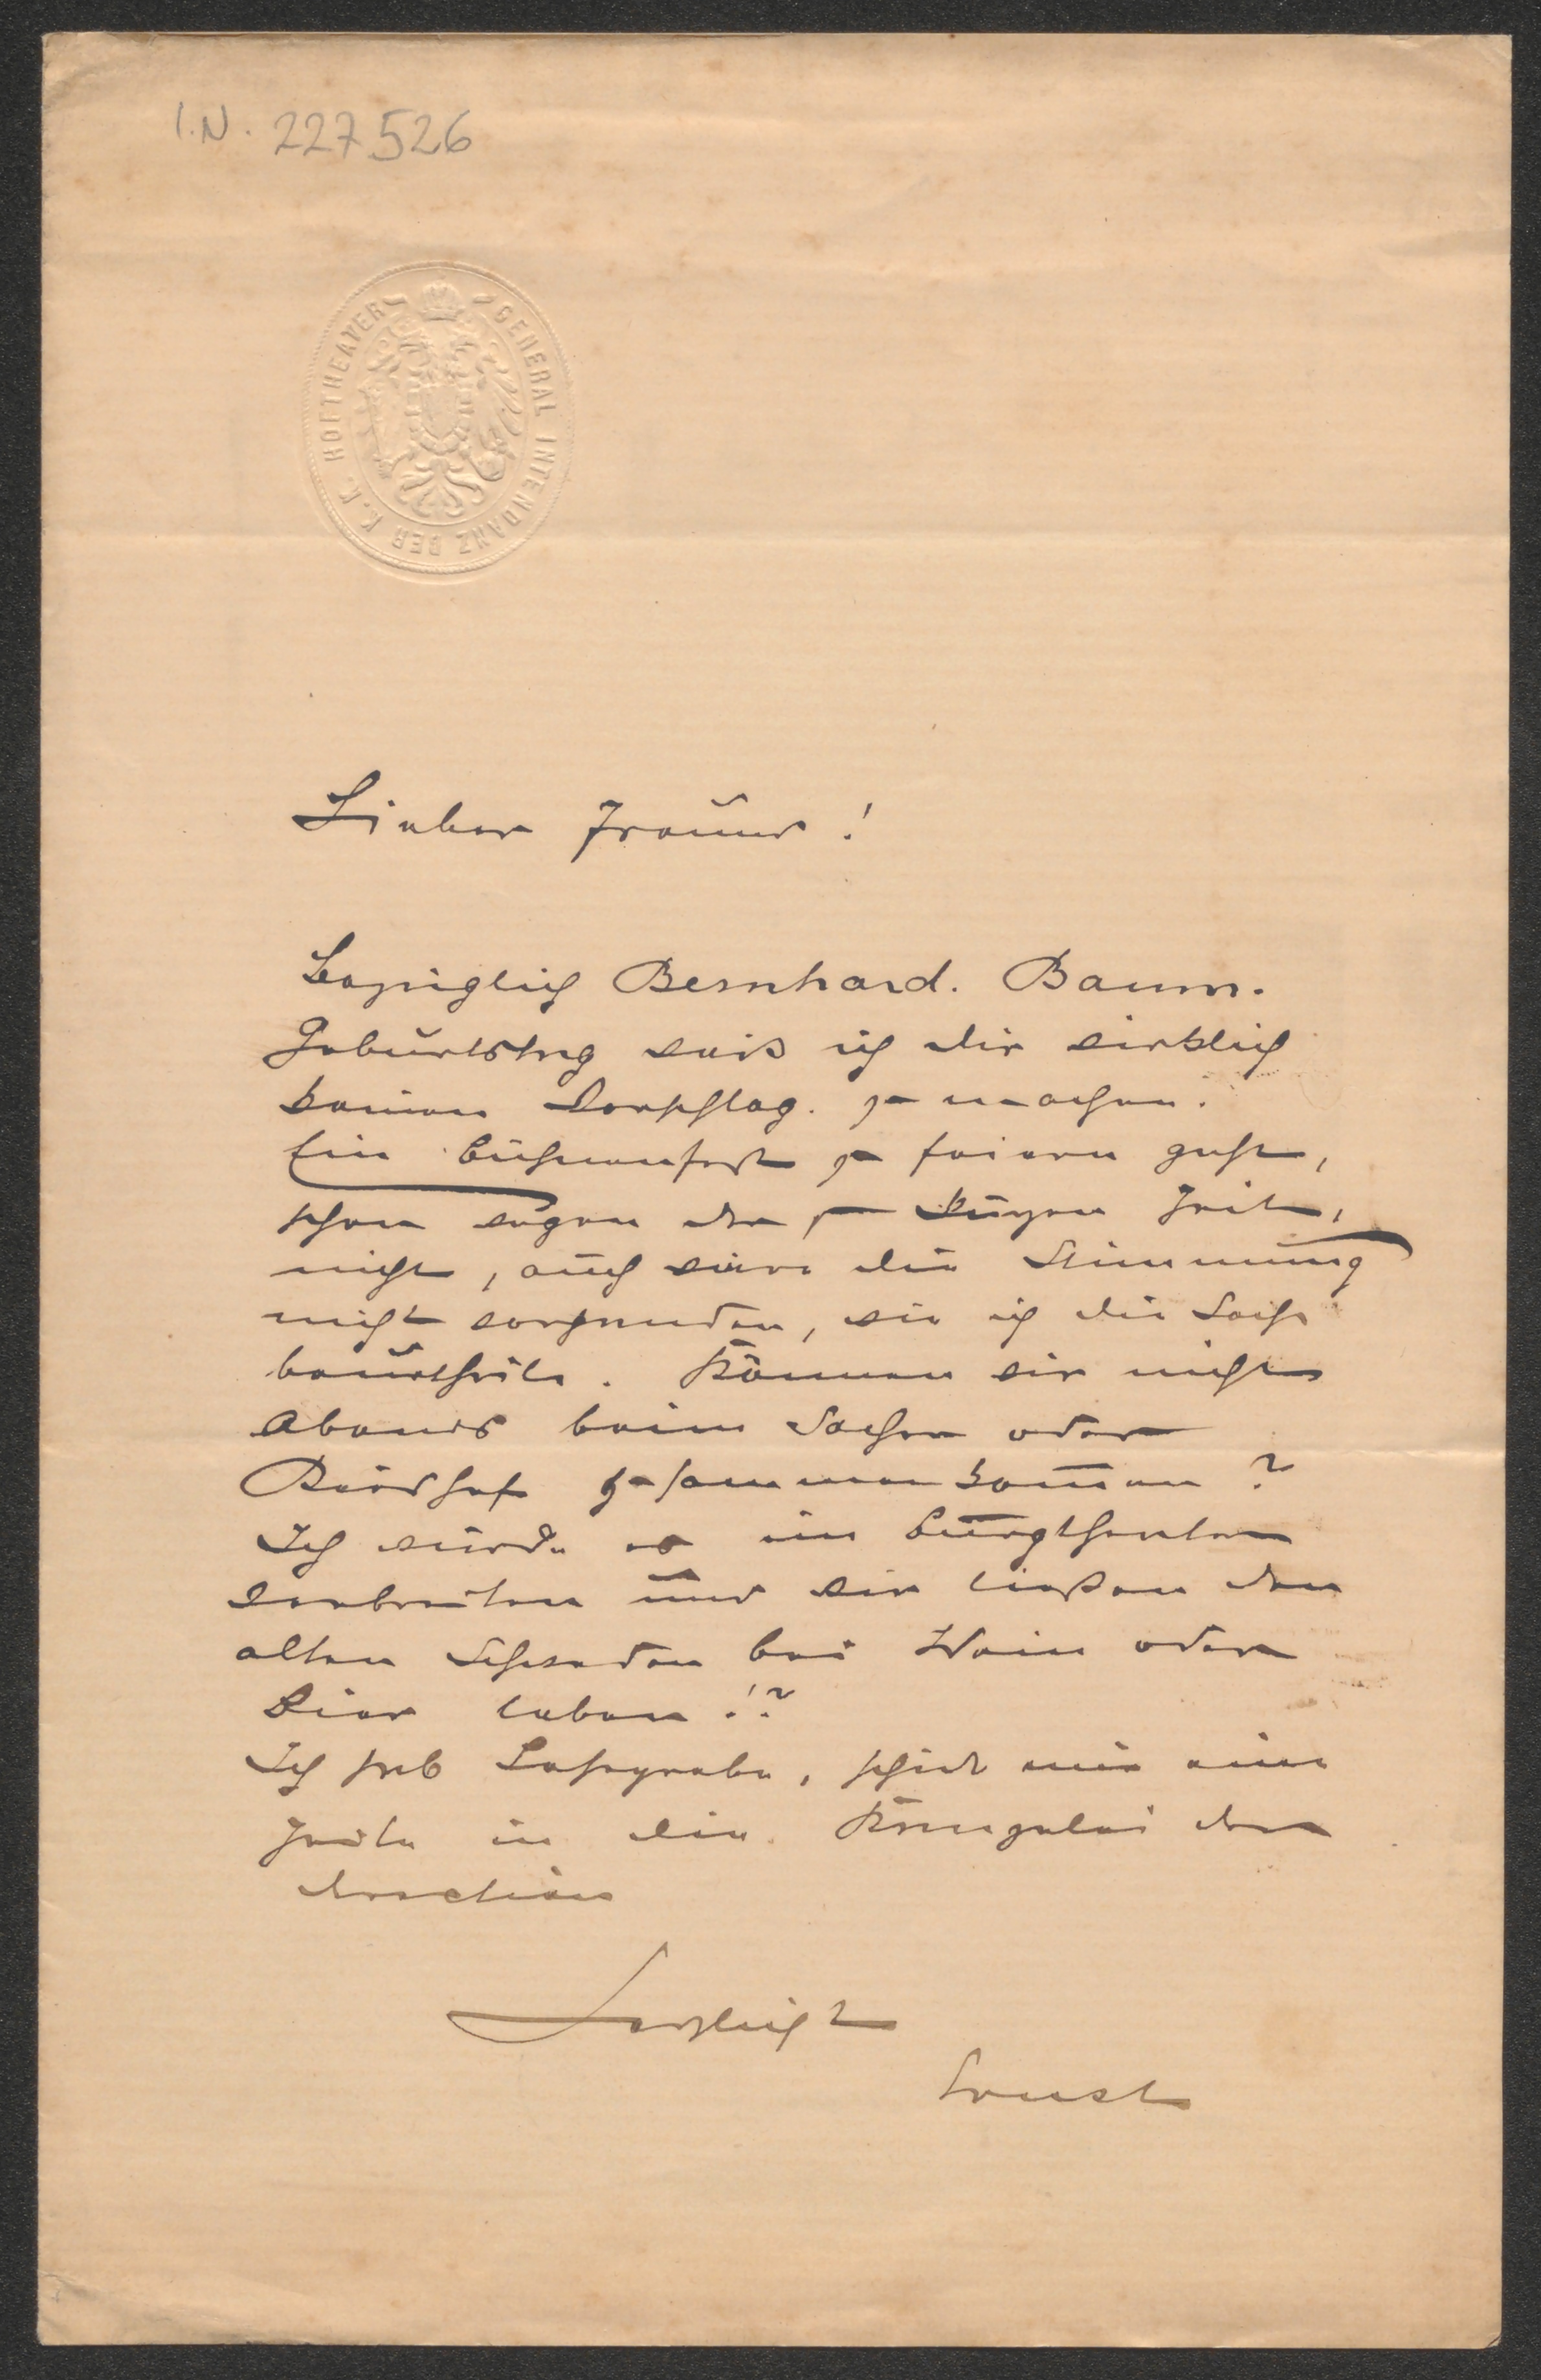 I.N. 227526
GENERAL INTENDANZ DER K.K. HOFTHEATER
Lieber Freund!
Bezüglich Bernhard. Baum.
Geburtstag weiß ich dir wirklich
keinen Vorschlag. zu machen.
Ein Bühnenfest zu feiern geht,
schon wegen der zu kurzen Zeit,
nicht, auch wäre die Stimmung
nicht vorhanden, wie ich die Sache
beurtheile. Können wir nicht
Abends beim Sacher oder
zusammenkommen?
Ich würde es im Burgtheater
verbreiten und wir ließen den
alten bei Wein oder
Bier leben!?
Ich hab Leseprobe, schick mir eine
Zeile in die Kanzelei der
Direction
Herzlichst
Ernst